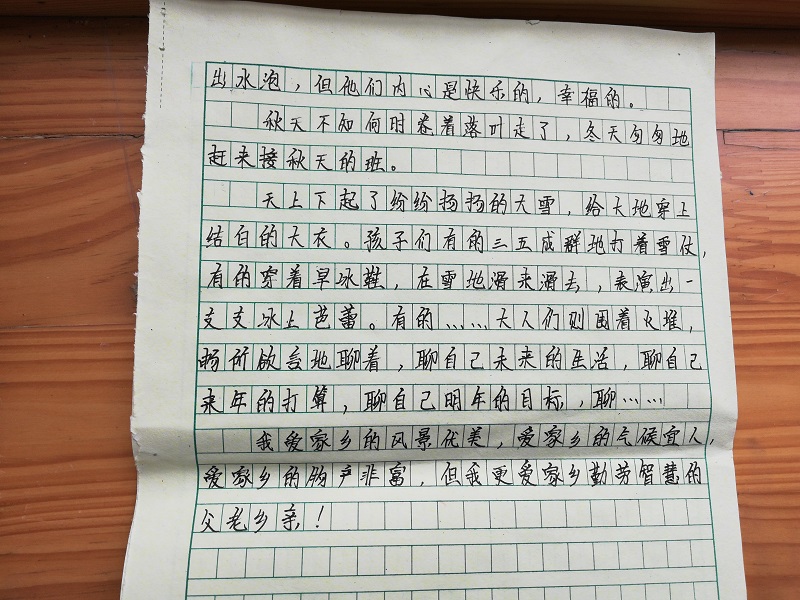 出水泡，但他们内心是快乐的，幸福的。
秋天不知何时卷着落叶走了，冬天匆匆地
赶来接秋天的班。
天上下起了纷纷扬扬的大雪，给大地穿上
结白的大衣。孩子们有的三五成群地打着雪仗，
有的穿着旱冰鞋，在雪地滑来滑去，表演出一
支支冰上芭蕾。有的……大人们则围着火堆，
畅所欲言地聊着，聊自己未来的生活，聊自己
来年的打算，聊自己明年的目标，聊……
我爱家乡的风景优美，爱家乡的气候宜人，
爱家乡的物产非富，但我更爱家乡勤劳智慧的
父老乡亲！